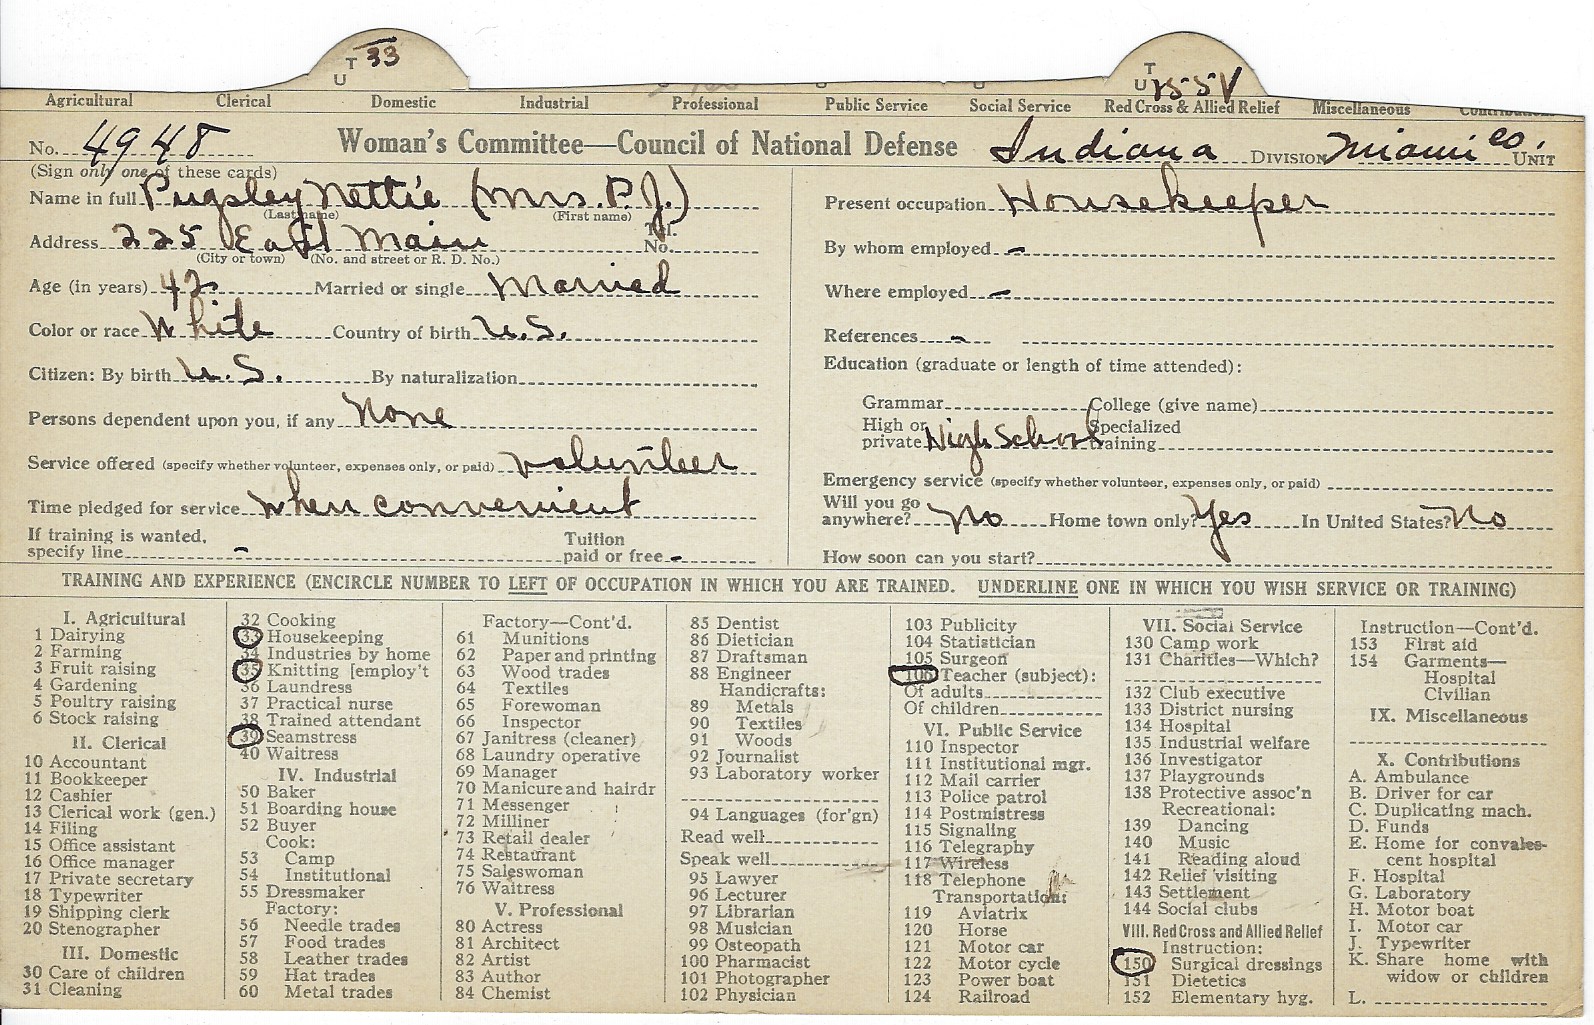 T 33
U
T
U 15-5V
Agricultural Clerical Domestic Industrial Professional Public Service Social Service Red Cross & Allied Relief Miscellaneous
No. 4948 Woman's Committee—Council of National Defense Indiana DIVISION Miami Co. UNIT
(Sign only one of these cards)
Name in full Pugsley Nettie (Mrs. P. J.)
(Last name) (First name)
Address 225 East Main Tel. No.
(City or town) (No. and street or R. D. No.)
Age (in years) 42 Married or single Married
Color or race White Country of birth U.S.
Citizen: By birth U.S. By naturalization
Persons dependent upon you, if any None
Service offered (specify whether volunteer, expenses only, or paid) volunteer
Time pledged for service when convenient
If training is wanted,
specify line - Tuition
paid or free -
Present occupation Housekeeper
By whom employed -
Where employed -
References -
Education (graduate or length of time attended):
Grammar College (give name)
High or
private High School Specialized
training
Emergency service (specify whether volunteer, expenses only, or paid)
Will you go
anywhere? No Home town only? Yes In United States? No
How soon can you start?
TRAINING AND EXPERIENCE (ENCIRCLE NUMBER TO LEFT OF OCCUPATION IN WHICH YOU ARE TRAINED. UNDERLINE ONE IN WHICH YOU WISH SERVICE OR TRAINING)
I. Agricultural
1 Dairying
2 Farming
3 Fruit raising
4 Gardening
5 Poultry raising
6 Stock raising
II. Clerical
10 Accountant
11 Bookkeeper
12 Cashier
13 Clerical work (gen.)
14 Filing
15 Office assistant
16 Office manager
17 Private secretary
18 Typewriter
19 Shipping clerk
20 Stenographer
III. Domestic
30 Care of children
31 Cleaning
32 Cooking
33 Housekeeping
34 Industries by home
35 Knitting [employ't
36 Laundress
37 Practical nurse
38 Trained attendant
39 Seamstress
40 Waitress
IV. Industrial
50 Baker
51 Boarding house
52 Buyer
Cook:
53 Camp
54 Institutional
55 Dressmaker
Factory:
56 Needle trades
57 Food trades
58 Leather trades
59 Hat trades
60 Metal trades
Factory—Cont'd.
61 Munitions
62 Paper and printing
63 Wood trades
64 Textiles
65 Forewoman
66 Inspector
67 Janitress (cleaner)
68 Laundry operative
69 Manager
70 Manicure and hairdr
71 Messenger
72 Milliner
73 Retail dealer
74 Restaurant
75 Saleswoman
76 Waitress
V. Professional
80 Actress
81 Architect
82 Artist
83 Author
84 Chemist
85 Dentist
86 Dietician
87 Draftsman
88 Engineer
Handicrafts:
89 Metals
90 Textiles
91 Woods
92 Journalist
93 Laboratory worker
94 Languages (for'gn)
Read well
Speak well
95 Lawyer
96 Lecturer
97 Librarian
98 Musician
99 Osteopath
100 Pharmacist
101 Photographer
102 Physician
103 Publicity
104 Statistician
105 Surgeon
106 Teacher (subject):
Of adults
Of children
VI. Public Service
110 Inspector
111 Institutional mgr.
112 Mail carrier
113 Police patrol
114 Postmistress
115 Signaling
116 Telegraphy
117 Wireless
118 Telephone
Transportation:
119 Aviatrix
120 Horse
121 Motor car
122 Motor cycle
123 Power boat
124 Railroad
VII. Social Service
130 Camp work
131 Charities—Which?
132 Club executive
133 District nursing
134 Hospital
135 Industrial welfare
136 Investigator
137 Playgrounds
138 Protective assoc'n
Recreational:
139 Dancing
140 Music
141 Reading aloud
142 Relief visiting
143 Settlement
144 Social clubs
VIII. Red Cross and Allied Relief
Instruction:
150 Surgical dressings
151 Dietetics
152 Elementary hyg.
Instruction—Cont'd.
153 First aid
154 Garments—
Hospital
Civilian
IX. Miscellaneous
X. Contributions
A. Ambulance
B. Driver for car
C. Duplicating mach.
D. Funds
E. Home for convales-
cent hospital
F. Hospital
G. Laboratory
H. Motor boat
I. Motor car
J. Typewriter
K. Share home with
widow or children
L.